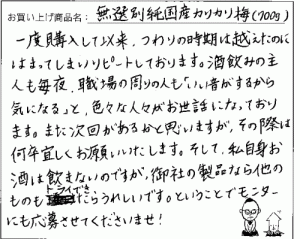 お買い上げ商品名：無選別純国産カリカリ梅(700g)
一度購入して以来、つわりの時期は越えたのに
はまってしまいリピートしております。酒飲みの主
人も毎夜、職場の周りの人も「いい音がするから
気になる」と、色々な人々がお世話になっており
ます。また次回があるかと思いますが、その際は
何卒宜しくお願いいたします。そして、私自身お
酒は飲まないのですが、御社の製品なら他の
ものもトライできたらうれしいです。ということでモニター
にも応募させてくださいませ！